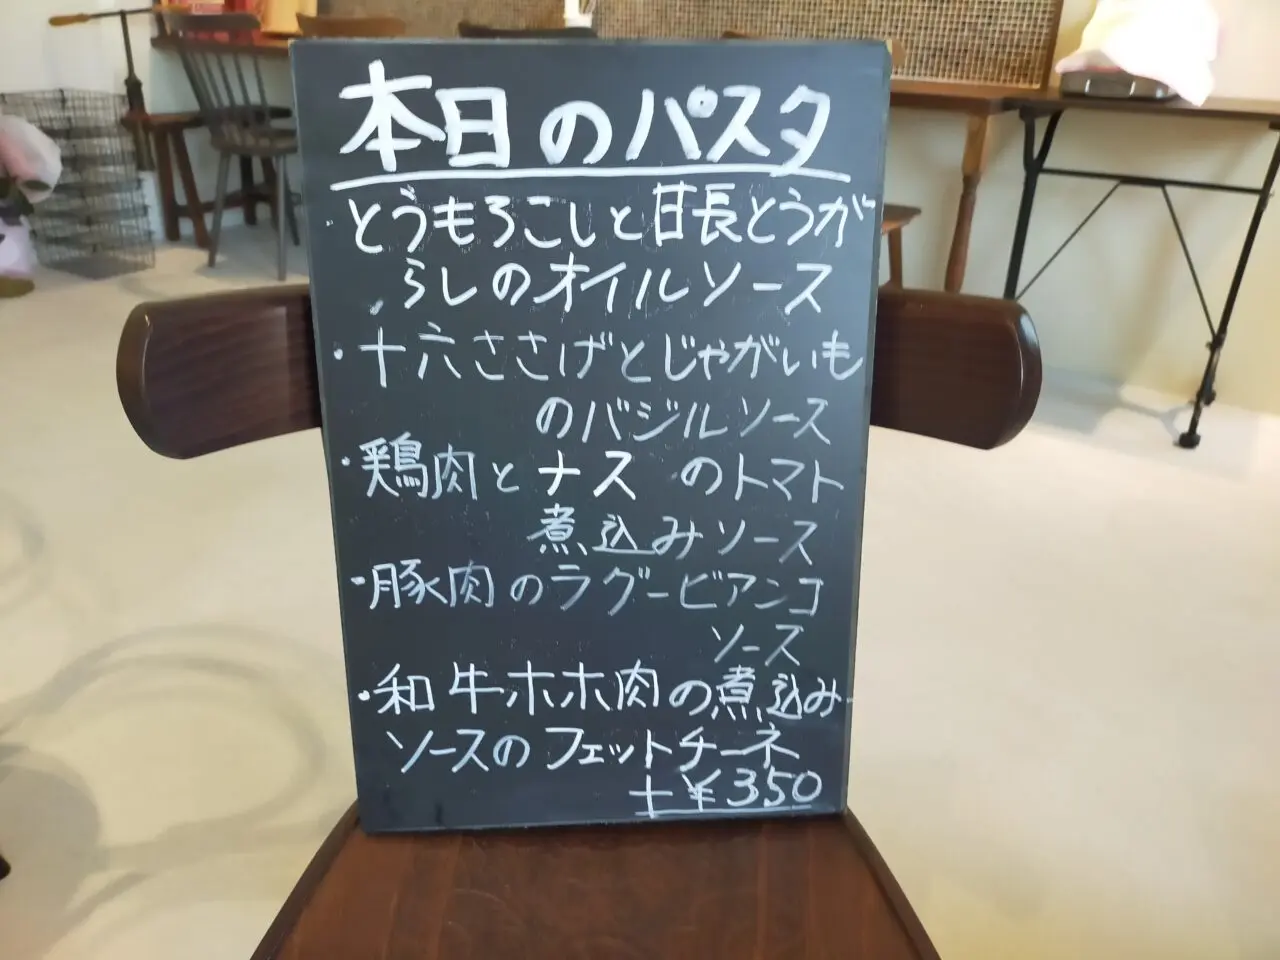 本日のパスタ
・とうもろこしと甘長とうが
らしのオイルソース
・十六ささげとじゃがいも
のバジルソース
・鶏肉とナスのトマト
煮込みソース
・豚肉のラグービアンコ
ソーズ
・和牛ホホ肉の煮込み
ソースのフェットチーネ
+¥350